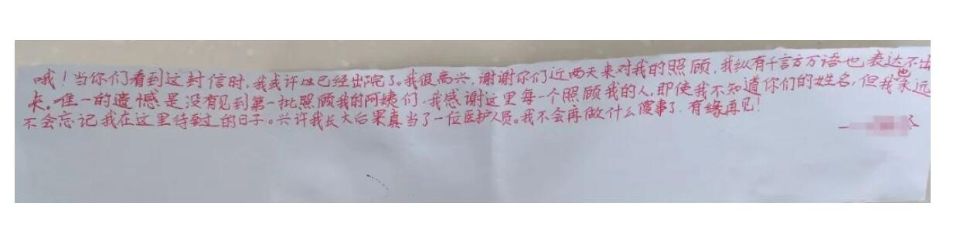 哦！当你们看到这封信时，我或许已经出院了。我很高兴，谢谢你们近两天来对我的照顾，我纵有千言万语也表达不出
来。唯一的遗憾是没有见到第一批照顾我的阿姨们，我感谢这里每一个照顾我的人，即使我不知道你们的姓名，但我永远
不会忘记我在这里待过的日子。兴许我长大后果真当了一位医护人员。我不会再做什么傻事了，有缘再见！